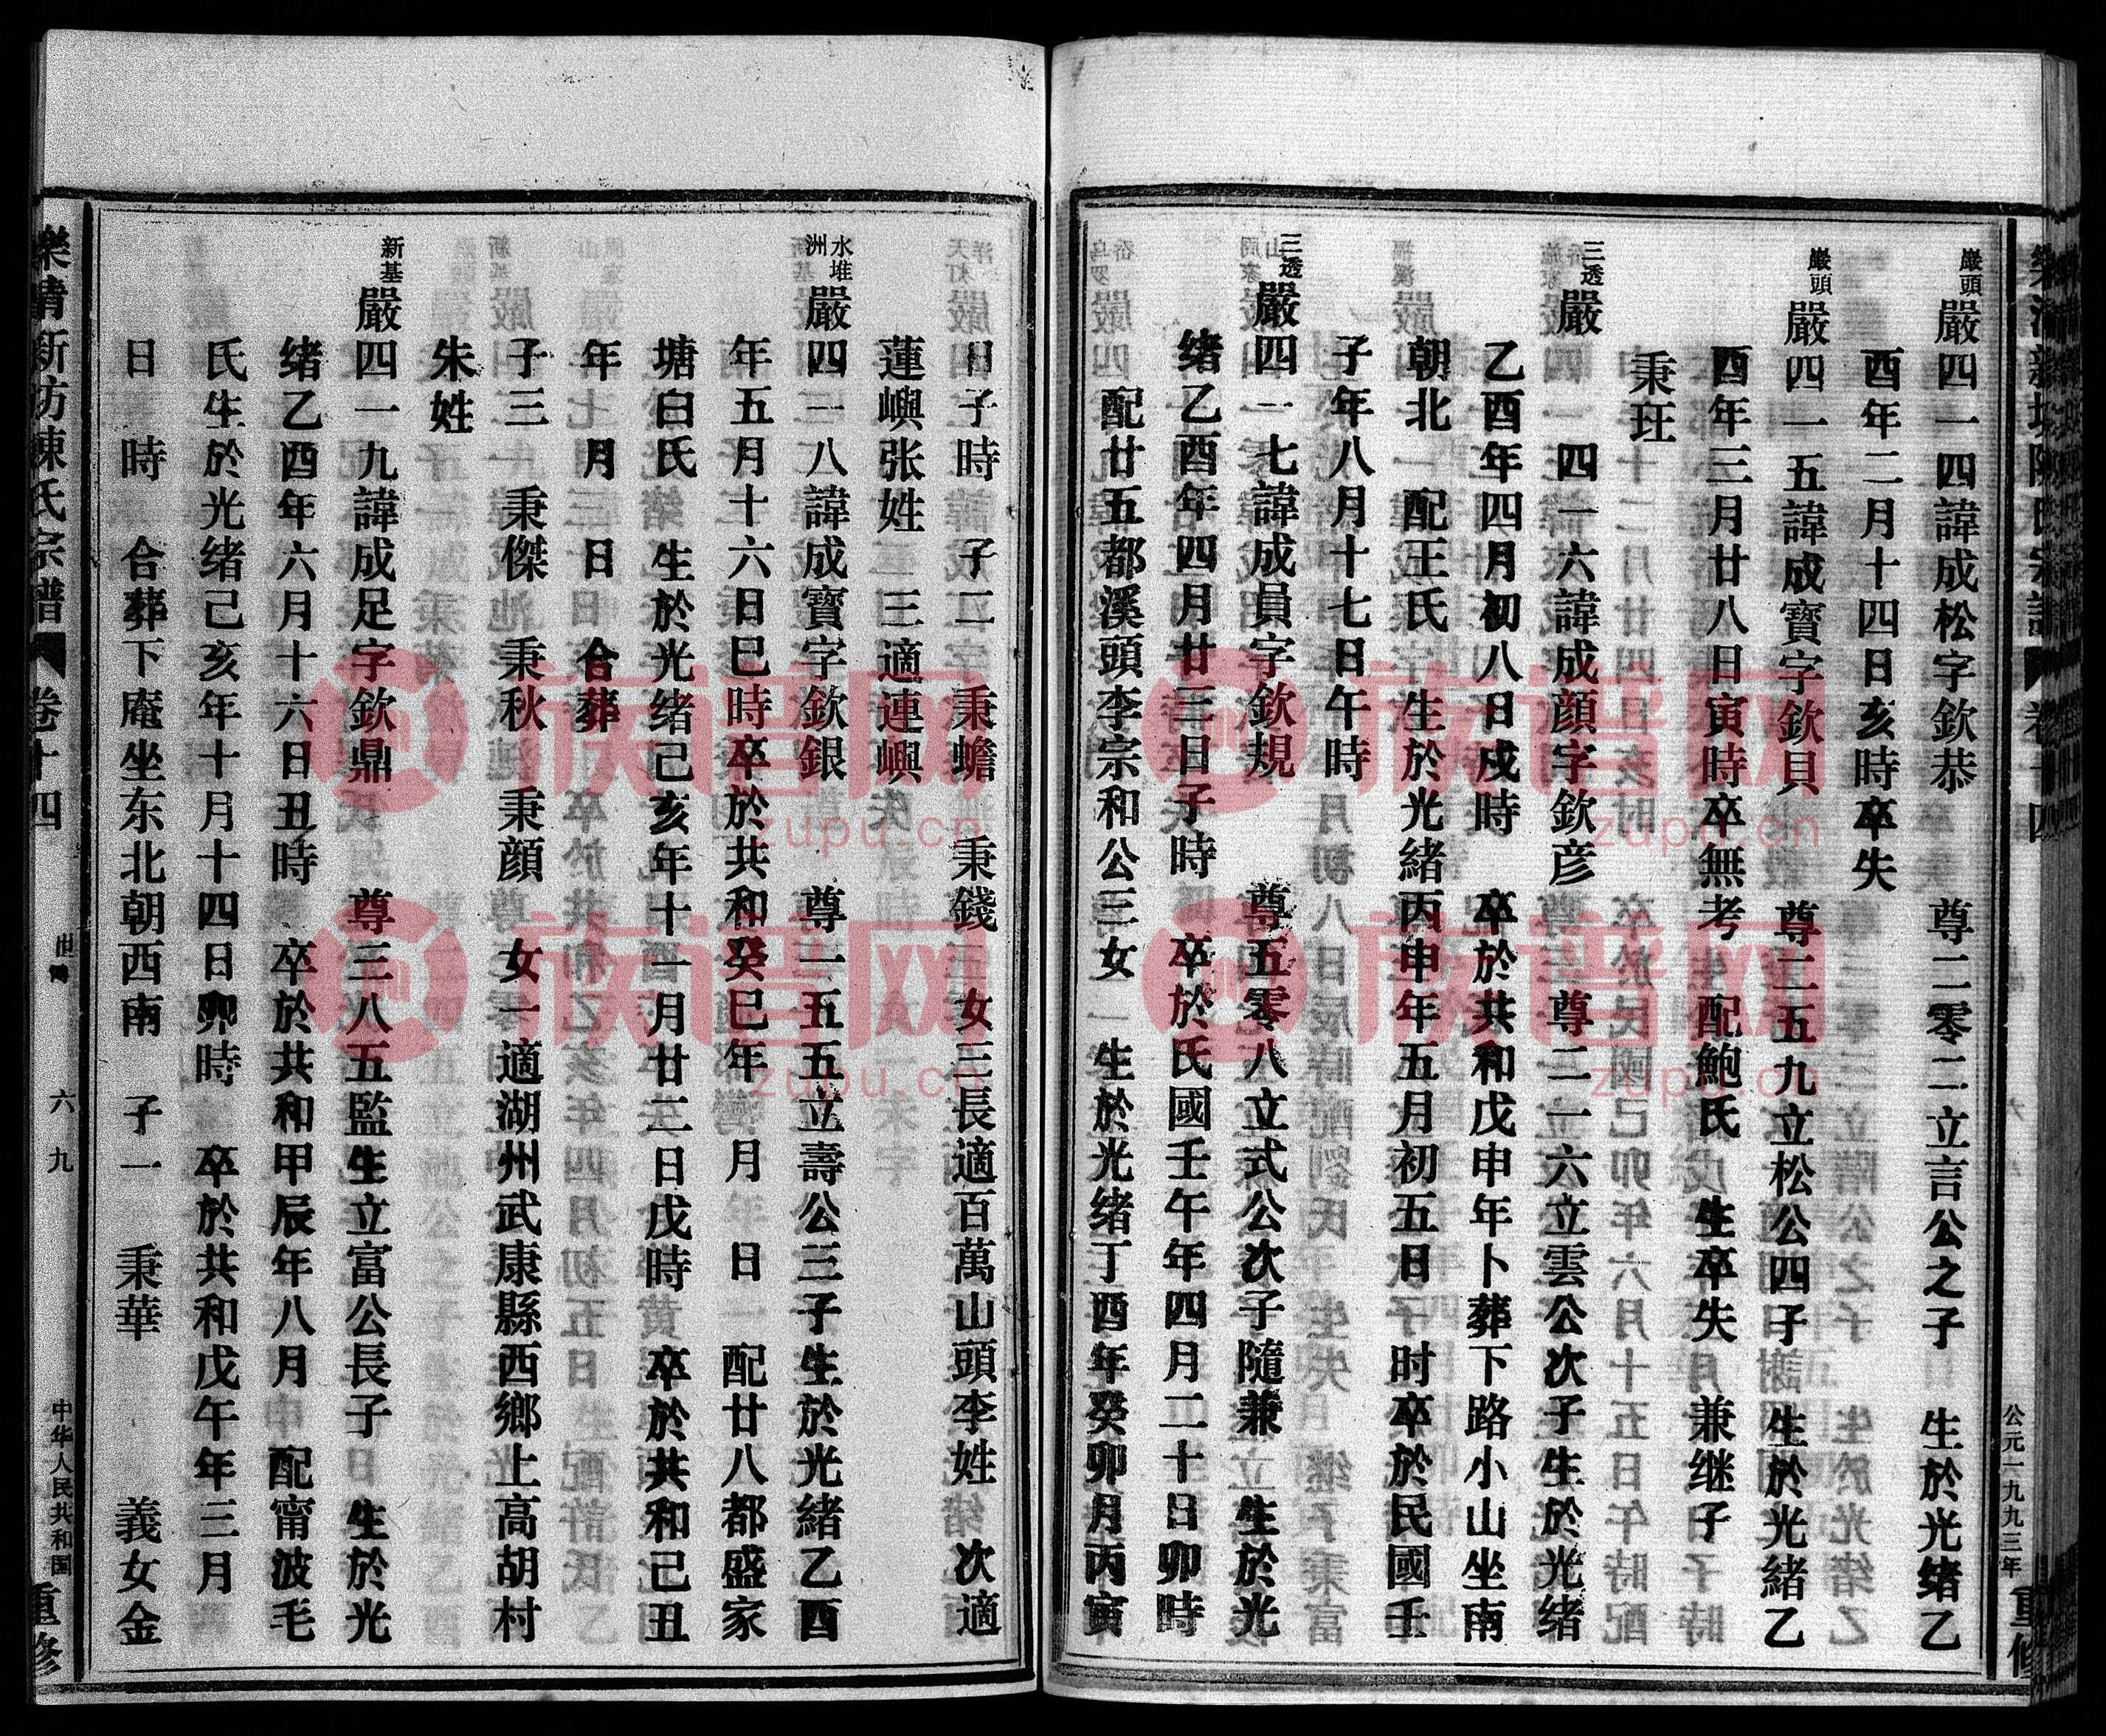 公元一九九三年 重修
巖頭 嚴四一四諱成松字欽恭 尊二零二立言公之子 生於光緒乙
酉年二月十四日亥時卒失
巖頭 嚴四一五諱成寶字欽貝 尊二五九立松公四子 生於光緒乙
酉年三月廿八日寅時卒無考 配鮑氏 生卒失 兼继子
秉玨
三透 嚴 四一六諱成顔字欽彦 尊二一六立雲公次子生於光绪
乙酉年四月初八日戌時 卒於共和戊申年卜葬下路小山坐南
朝北 配王氏 生於光緒丙申年五月初五日子时卒於民國壬
子年八月十七日午時
三透 嚴四一七諱成員字欽規 尊五零八立式公次子隨兼 生於光
绪乙酉年四月廿三日子時 卒於民國壬午年四月二十日卯時
配廿五都溪頭李宗和公三女 生於光绪丁酉年癸卯月丙寅
日子時 子二 秉蟾 秉錢 女三長適百萬山頭李姓 次適
蓮嶼张姓 三適連嶼
水堆洲 嚴四一八諱成寶字欽銀 尊一五五立壽公三子生於光緒乙酉
年五月十六日巳時卒於共和癸巳年 月 日 配廿八都盛家
塘白氏 生於光绪己亥年十一月廿二日戊時 卒於共和己丑
年 月 日 合葬
子三 秉傑 秉秋 秉顔 女一適湖州武康縣西鄉上高胡村
朱姓
新基 嚴四一九諱成足字欽鼎 尊三八五監生立富公長子 生於光
绪乙酉年六月十六日丑時 卒於共和甲辰年八月 配甯波毛
氏生於光绪己亥年十月十四日卯時 卒於共和戊午年三月
日 時 合葬下庵坐东北朝西南 子一 秉華 義女金
樂清新坊陳氏宗譜 卷十四 六九 中华人民共和国 重修
族谱网
zupu.cn
族谱网
zupu.cn
族谱网
zupu.cn
族谱网
zupu.cn